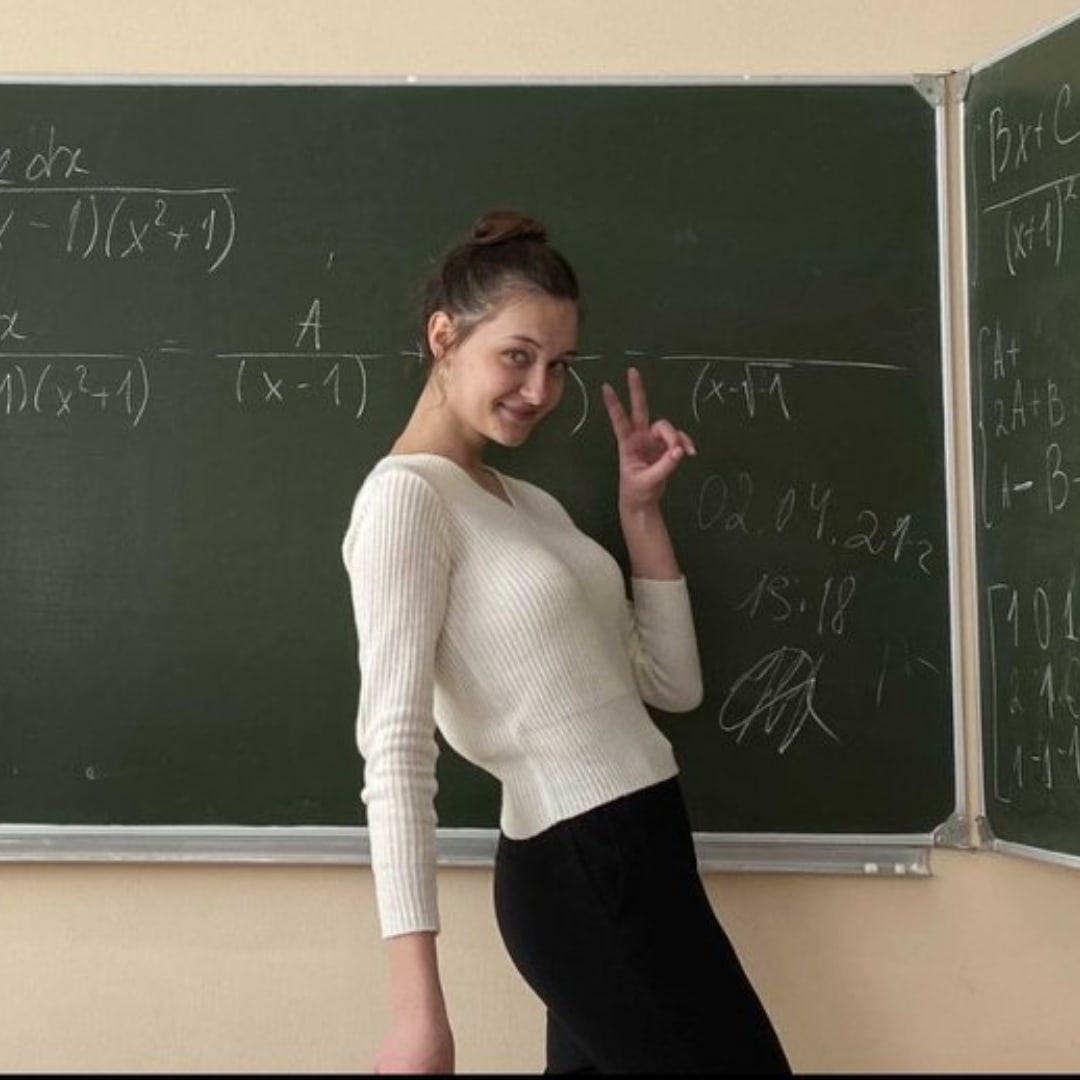 dx
- 1)(x²+1)
x
1)(x²+1) = A
(x-1)
)
=
(x-√-1
02.04.21
15:18
Bx+C
(x+1)²
A+
2A+B
A-B-
1 0 1
2 1
1 -1 -1